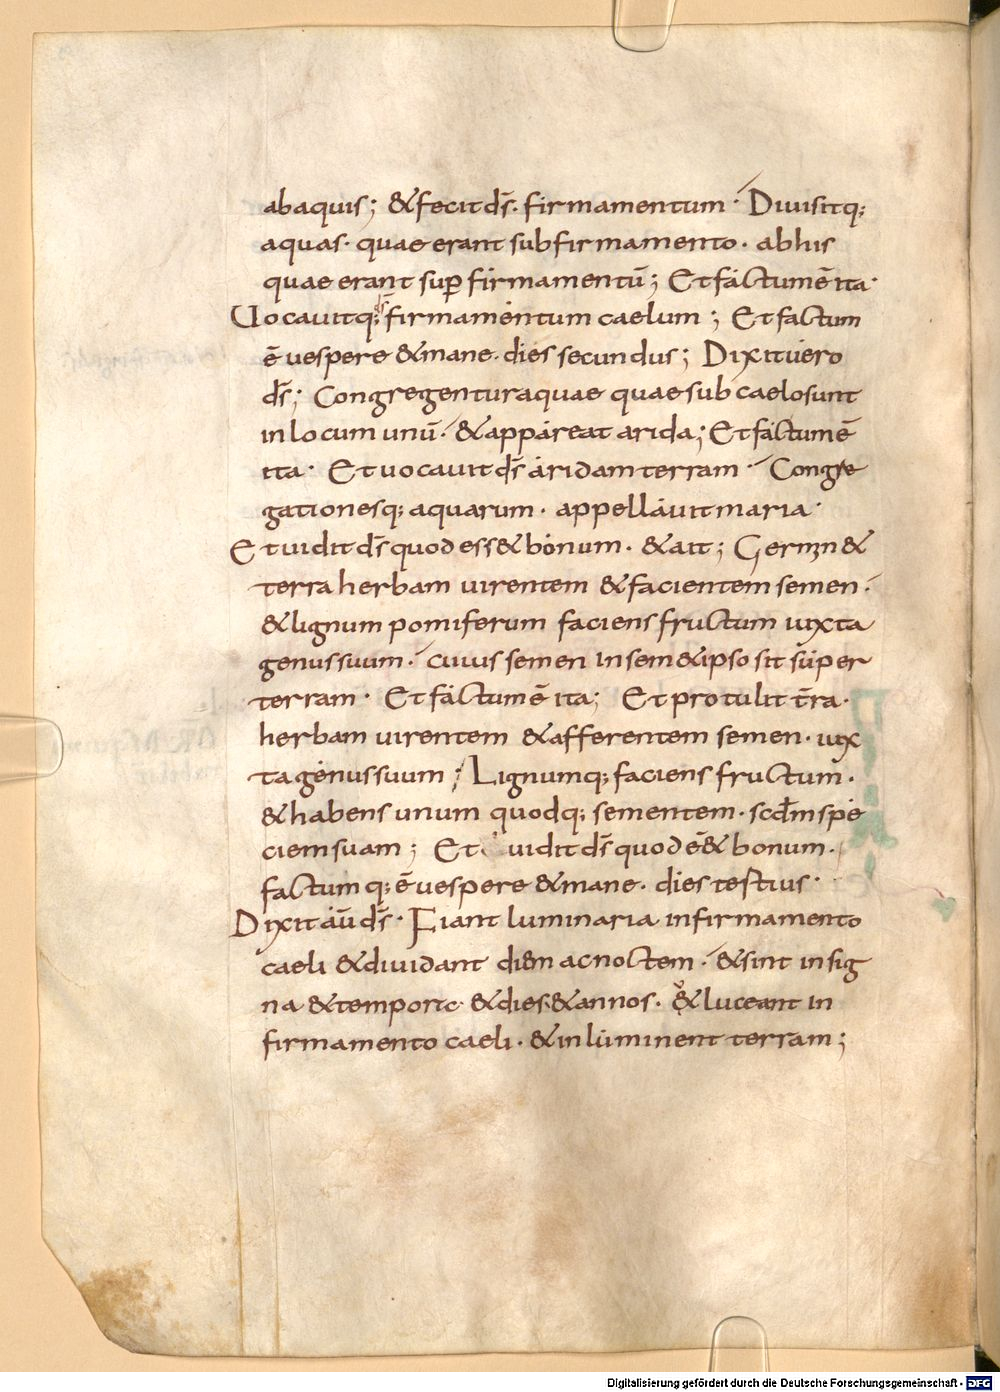 abaquis; & fecit ds̄. firmamentum. Diuisitq;
aquas. quae erant subfirmamento. abhis
quae erant sup̄ firmamentū; Et factum ē ita.
Uocauitq; ds̄ firmamentum caelum; Et factum
ē uespere & mane. dies secundus; Dixit uero
ds̄; Congregentur aquae quae sub caelo sunt
in locum unū. & appareat arida; Et factum ē
ita. Et uocauit ds̄ aridam terram. Congre
gationesq; aquarum. appellauit maria.
Et uidit ds̄ quod ess& bonum. & ait; Germin&
terra herbam uirentem & facientem semen.
& lignum pomiferum faciens fructum iuxta
genus suum. cuius semen in sem&ipso sit super
terram. Et factum ē ita; Et protulit t̄ra.
herbam uirentem & afferentem semen. iux
ta genus suum; Lignumq; faciens fructum.
& habens unum quodq; sementem. scd̄m spe
ciem suam; Et uidit ds̄ quod ēē& bonum.
factumq; ē uespere & mane. dies tertius.
Dixit aū ds̄. Fiant luminaria in firmamento
caeli & diuidant diem ac noctem. & sint in sig
na & tempora & dies & annos. & luceant in
firmamento caeli. & inluminent terram;
Digitalisierung gefördert durch die Deutsche Forschungsgemeinschaft - DFG